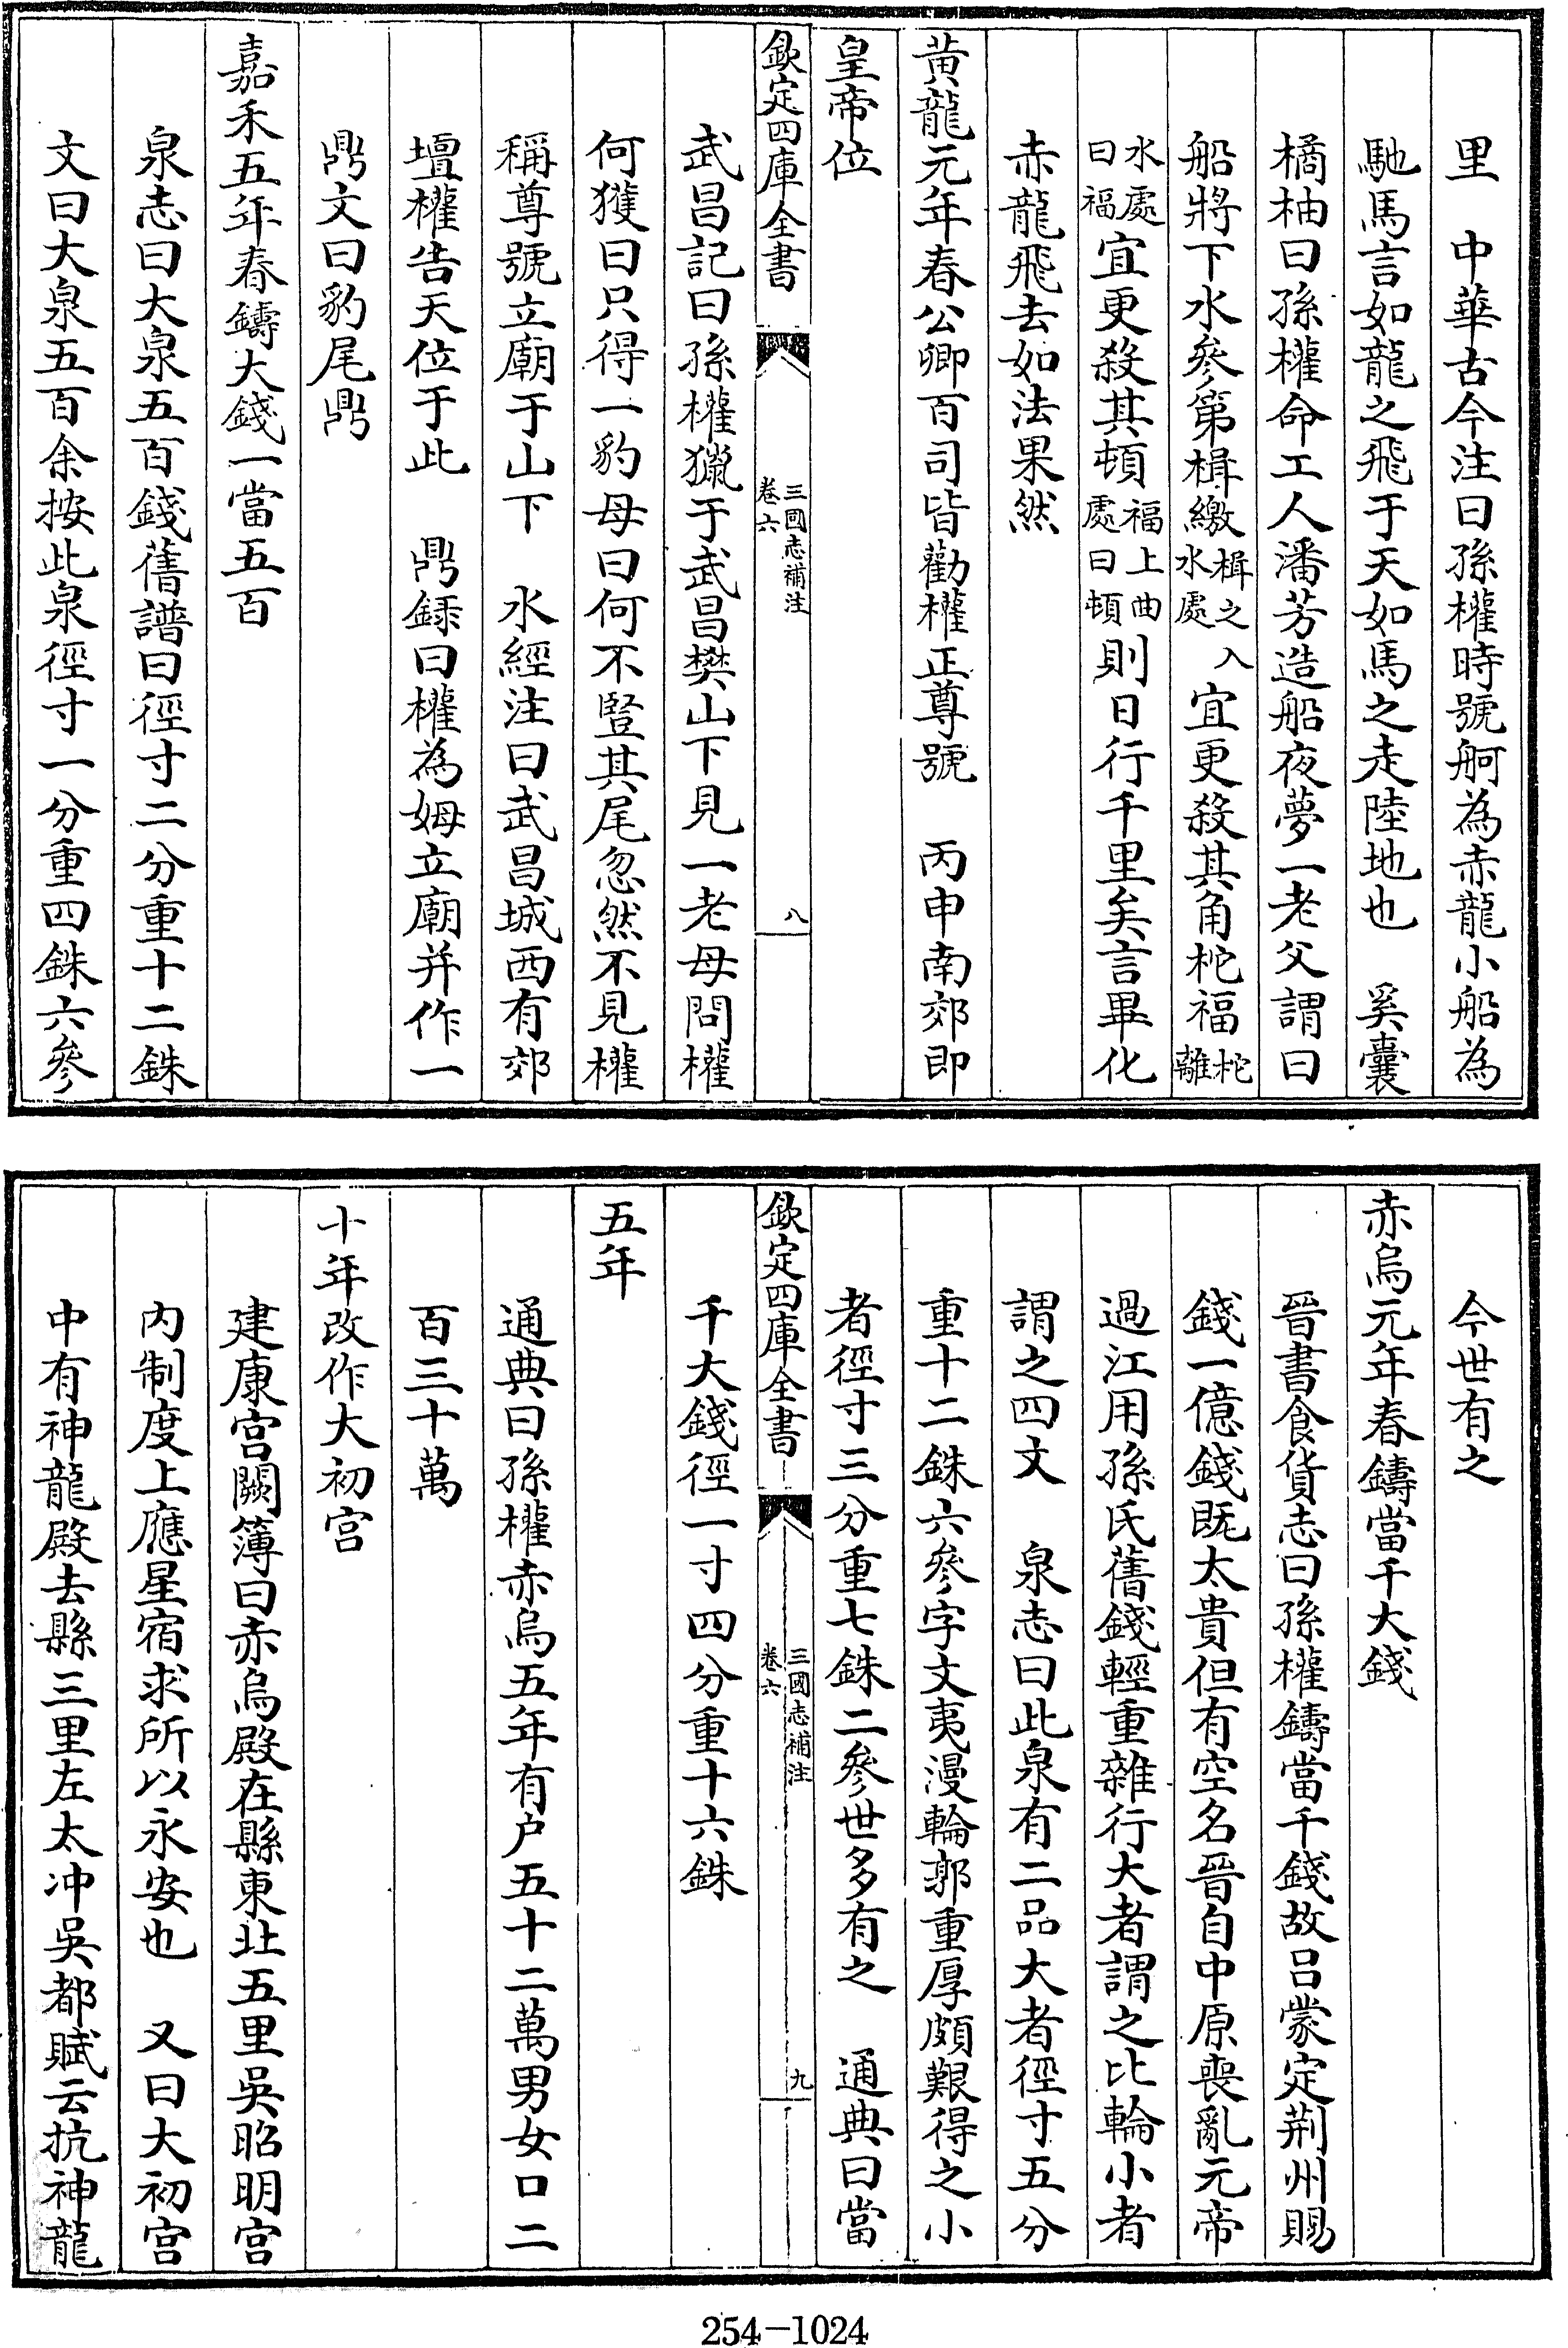 里　中華古今注曰孫權時號舸為赤龍小船為
馳馬言如龍之飛于天如馬之走陸地也　奚囊
橘柚曰孫權命工人潘芳造船夜夢一老父謂曰
船將下水參第楫繳楫之入水處宜更殺其角柁福柁離
水處曰福宜更殺其頓福上曲處曰頓則日行千里矣言畢化
赤龍飛去如法果然
黃龍元年春公卿百司皆勸權正尊號　丙申南郊即
皇帝位
欽定四庫全書　三國志補注卷六　八
武昌記曰孫權獵于武昌樊山下見一老母問權
何獲曰只得一豹母曰何不豎其尾忽然不見權
稱尊號立廟于山下　水經注曰武昌城西有郊
壇權告天位于此　鼎録曰權為姆立廟并作一
鼎文曰豹尾鼎
嘉禾五年春鑄大錢一當五百
泉志曰大泉五百錢舊譜曰徑寸二分重十二銖
文曰大泉五百余按此泉徑寸一分重四銖六參
今世有之
赤烏元年春鑄當千大錢
晉書食貨志曰孫權鑄當千錢故吕蒙定荆州賜
錢一億錢既太貴但有空名晉自中原喪亂元帝
過江用孫氏舊錢輕重雜行大者謂之比輪小者
謂之四文　泉志曰此泉有二品大者徑寸五分
重十二銖六參字文夷漫輪郭重厚頗艱得之小
者徑寸三分重七銖二參世多有之　通典曰當
欽定四庫全書　三國志補注卷六　九
千大錢徑一寸四分重十六銖
五年
通典曰孫權赤烏五年有户五十二萬男女口二
百三十萬
十年改作大初宫
建康宫闕簿曰赤烏殿在縣東北五里吳昭明宫
内制度上應星宿求所以永安也　又曰大初宫
中有神龍殿去縣三里左太冲吳都賦云抗神龍
254-1024